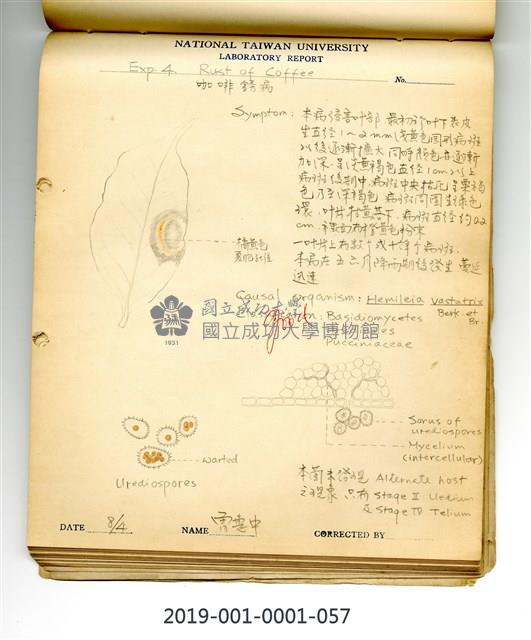 NATIONAL TAIWAN UNIVERSITY
LABORATORY REPORT
Exp. 4. Rust of Coffee
No.
咖啡銹病
Symptom: 本病侵害叶部 最初於叶下表皮
生直徑1~2mm淡黃色圓形病斑
以後逐漸擴大 同時顏色亦逐漸
加深 呈淡黃褐色直徑1cm以上
病斑後期中 病斑中央枯死 呈栗褐
色乃至深褐色 病斑周圍生綠色
環
cm 裡面有橙黃色粉末
一叶片上有數个或十等个病斑.
本病在五六月降雨期後發生 蔓延
迅速
橘黃色
Causal organism: Hemileia vastatrix
Berk. et Br.
Basidiomycetes
Pucciniaceae
國立成功大學
國立成功大學博物館
1931
Sorus of
urediospores
Mycelium
(intercellular)
warted
Urediospores
本菌未發現 Alternate host
之現象 只有 Stage II Uredium
& Stage IV Telium
DATE 8/4
NAME
CORRECTED BY
2019-001-0001-057